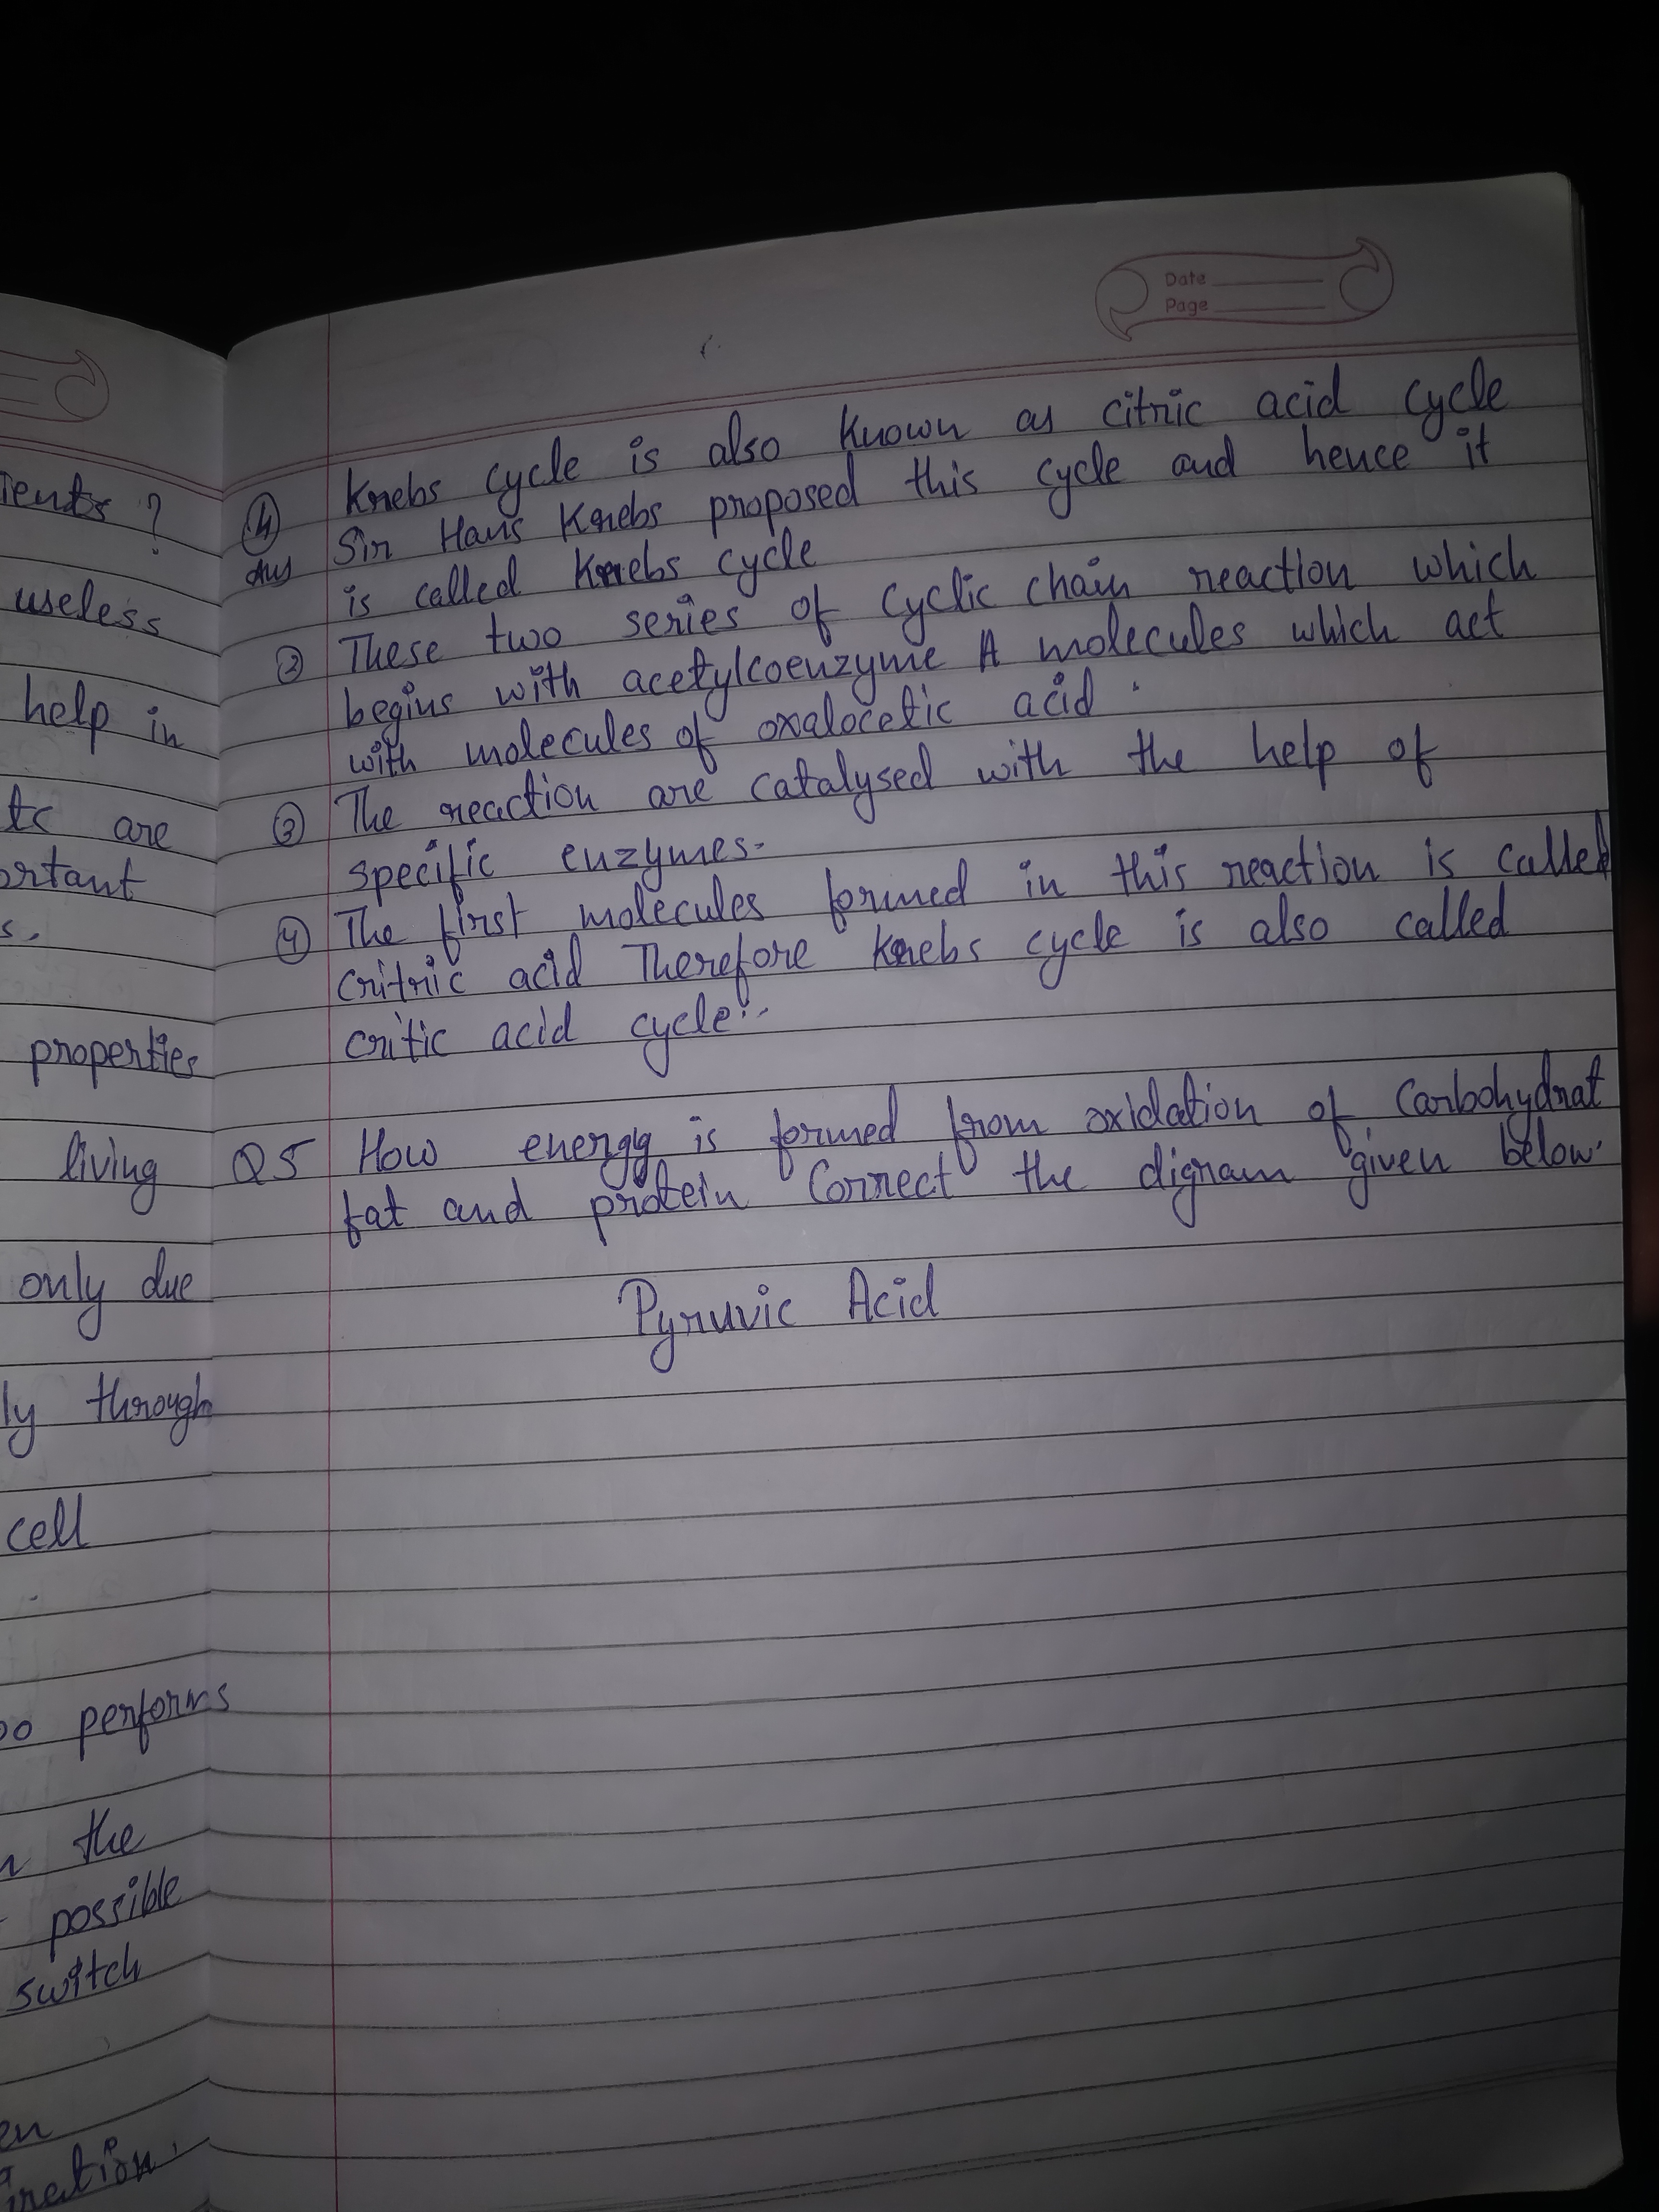 Date
Page
ients ?
useless
help in
tc are
ortant
s.
properties
living
only due
ly through
cell
oo performs
n the
possible
switch
en
iration.
④ Krebs cycle is also known as citric acid cycle
Ans Sir Hans Krebs proposed this cycle and hence it
is called Krebs cycle
② These two series of cyclic chain reaction which
begins with acetylcoenzyme A molecules which act
with molecules of oxalocetic acid.
③ The reaction are catalysed with the help of
specific enzymes.
④ The first molecules formed in this reaction is called
critric acid Therefore Krebs cycle is also called
critic acid cycle:-
Q5 How energy is formed from oxidation of Carbohydrat
fat and protein Correct the digram given below.
Pyruvic Acid